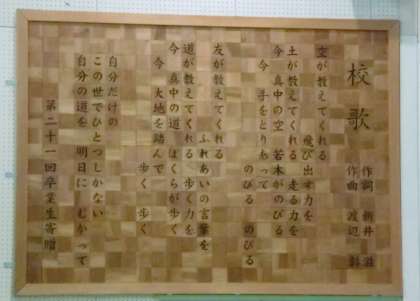 校歌
作詞 新井 
作曲 渡辺 
空が教えてくれる
飛び出す力を
土が教えてくれる 走る力を
今 真中の空 若木がのびる
今 手をとりあって
のびる のびる
友が教えてくれる
ふれあいの言葉を
道が教えてくれる 歩く力を
今 真中の道 ぼくらが歩く
今 大地を踏んで
歩く 歩く
自分だけの
この世でひとつしかない
自分の道を 明日にむかって
第二十一回卒業生寄贈